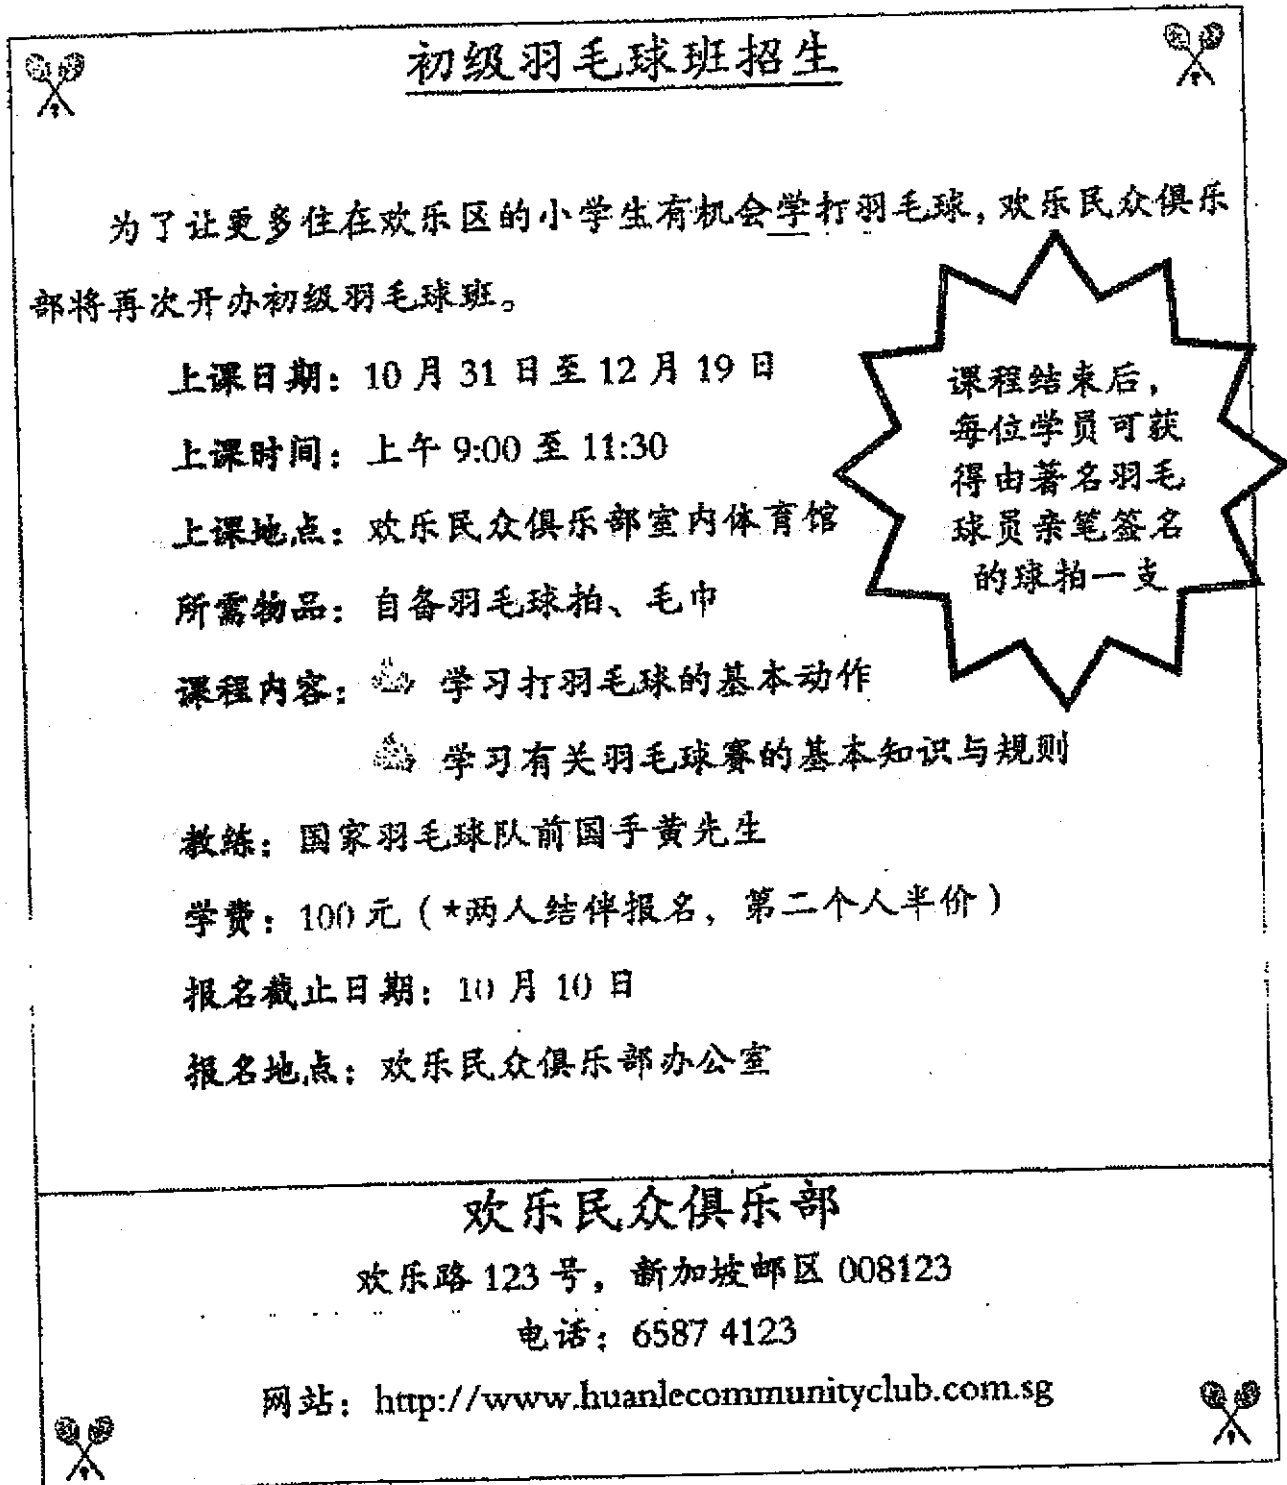 初级羽毛球班招生
为了让更多住在欢乐区的小学生有机会学打羽毛球，欢乐民众俱乐
部将再次开办初级羽毛球班。
上课日期：10 月 31 日至 12 月 19 日
上课时间：上午 9:00 至 11:30
上课地点：欢乐民众俱乐部室内体育馆
所需物品：自备羽毛球拍、毛巾
课程内容： 学习打羽毛球的基本动作
学习有关羽毛球赛的基本知识与规则
教练：国家羽毛球队前国手黄先生
学费：100 元（*两人结伴报名，第二个人半价）
报名截止日期：10 月 10 日
报名地点：欢乐民众俱乐部办公室
课程结束后，
每位学员可获
得由著名羽毛
球员亲笔签名
的球拍一支
欢乐民众俱乐部
欢乐路 123 号，新加坡邮区 008123
电话：6587 4123
网站：http://www.huanlecommunityclub.com.sg